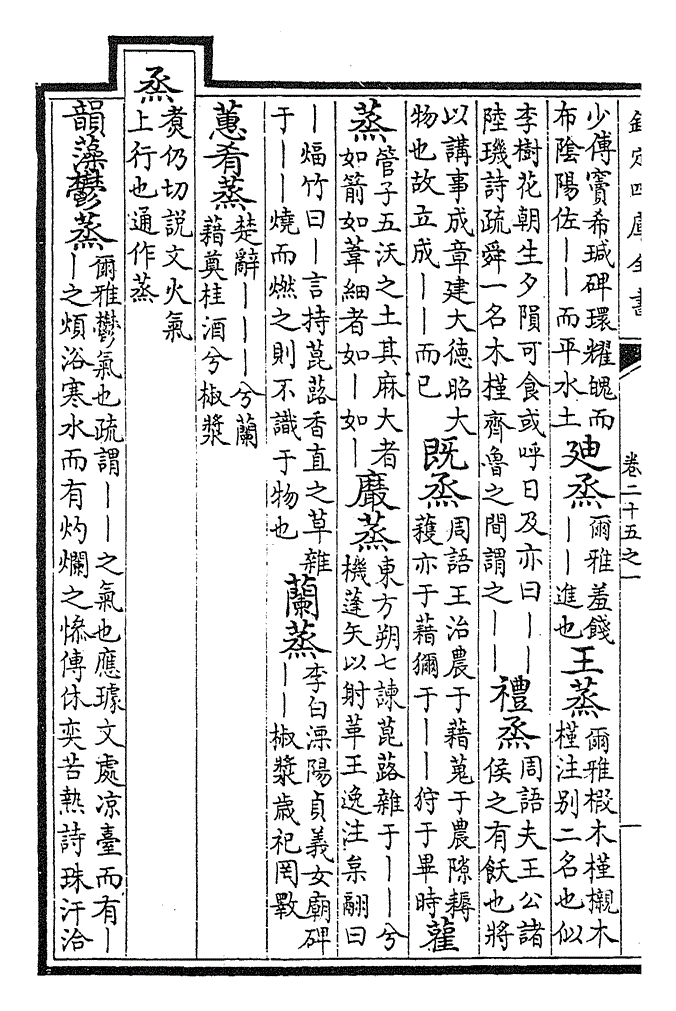 欽定四庫全書 卷二十五之一 一
少傅竇希瑊碑環耀魄而
布陰陽佐丨丨而平水土
廸烝
爾雅羞餞
丨丨進也
王蒸
爾雅椴木槿櫬木
槿注别二名也似
李樹花朝生夕隕可食或呼日及亦曰丨丨
陸璣詩疏舜一名木槿齊魯之間謂之丨丨
禮烝
周語夫王公諸
侯之有飫也將
以講事成章建大德昭大
物也故立成丨丨而已
既烝
周語王治農于藉蒐于農隙耨
穫亦于藉獮于丨丨狩于畢時
雚
蒸
管子五沃之土其麻大者
如箭如葦細者如丨如丨
黀蒸
東方朔七諫菎蕗雜于丨丨兮
機蓬矢以射革王逸注枲翮曰
丨煏竹曰丨言持菎蕗香直之草雜
于丨丨燒而燃之則不識于物也
蘭蒸
李白溧陽貞義女廟碑
丨丨椒漿歲祀罔斁
蕙肴蒸
楚辭丨丨丨兮蘭
藉奠桂酒兮椒漿
烝
煑仍切說文火氣
上行也通作蒸
韻藻鬱蒸
爾雅鬱氣也疏謂丨丨之氣也應璩文處凉臺而有丨
丨之煩浴寒水而有灼爛之慘傅休奕苦熱詩珠汗洽